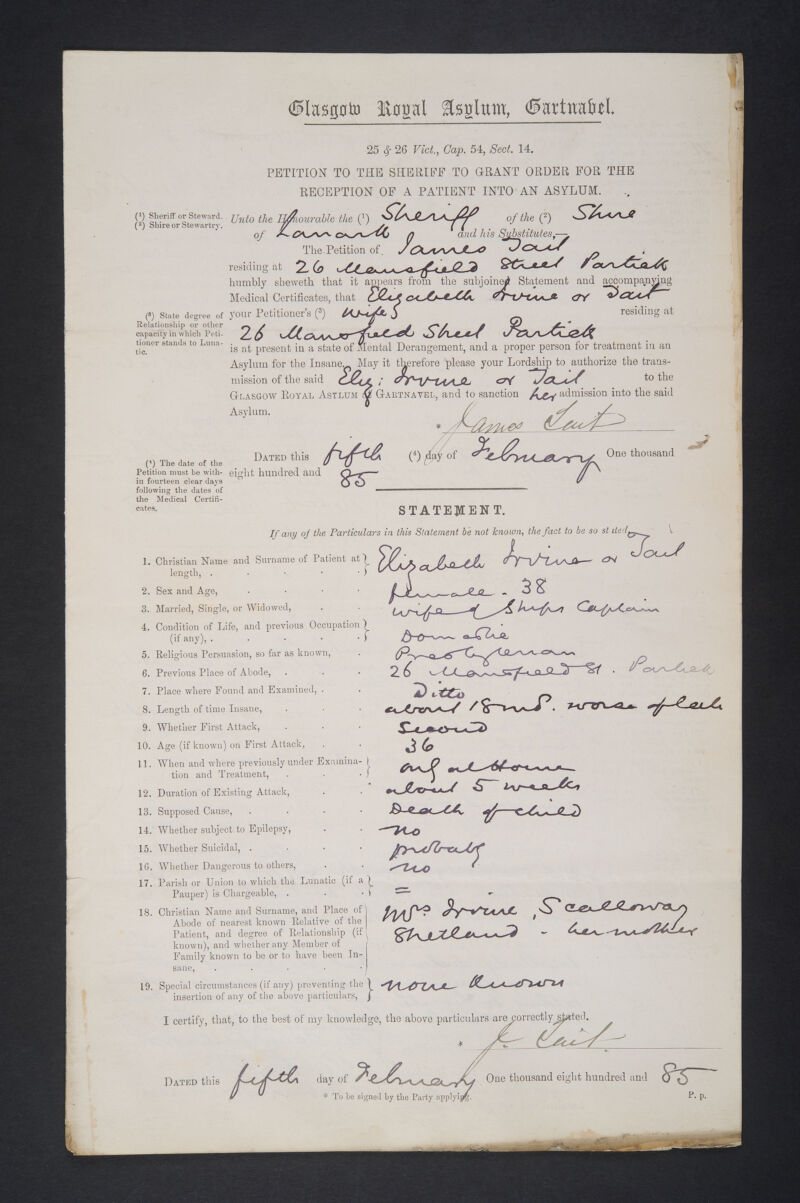 Glasgow Royal Asylum, Gartnavel.
25 & 26 Vict., Cap. 54, Sect. 14.
PETITION TO THE SHERIFF TO GRANT ORDER FOR THE
RECEPTION OF A PATIENT INTO AN ASYLUM.
(1) Sheriff or Steward.
(2) Shire or Stewartry.
Unto the Honourable the (1) Sheriff of the (2) Shire
of Lanark and his Substitutes,—
The Petition of James Tait
residing at 26 Mansfield Street Partick
humbly sheweth that it appears from the subjoined Statement and accompanying
Medical Certificates, that Elizabeth Irvine or Tait
(3) State degree of
Relationship or other
capacity in which Peti-
tioner stands to Luna-
tic.
your Petitioner's (3) wife residing at
26 Mansfield Street Partick
is at present in a state of Mental Derangement, and a proper person for treatment in an
Asylum for the Insane. May it therefore please your Lordship to authorize the trans-
mission of the said Eliz: Irvine or Tait to the
GLASGOW ROYAL ASYLUM of GARTNAVEL, and to sanction her admission into the said
Asylum.
* James Tait
(4) The date of the
Petition must be with-
in fourteen clear days
following the dates of
the Medical Certifi-
cates.
DATED this fifth (4) day of February One thousand
eight hundred and 85
STATEMENT.
If any of the Particulars in this Statement be not known, the fact to be so stated.
1. Christian Name and Surname of Patient at
length, . Elizabeth Irvine or Tait
2. Sex and Age, female. 38
3. Married, Single, or Widowed, wife of Ships Captain
4. Condition of Life, and previous Occupation
(if any), . Domestic
5. Religious Persuasion, so far as known, Presbyterian
6. Previous Place of Abode, 26 Mansfield St. Partick
7. Place where Found and Examined, . Ditto
8. Length of time Insane, about 18 mds. worse of late
9. Whether First Attack, Second
10. Age (if known) on First Attack, 36
11. When and where previously under Examina-
tion and Treatment, only at Home
12. Duration of Existing Attack, about 5 weeks
13. Supposed Cause, Death of child
14. Whether subject to Epilepsy, no
15. Whether Suicidal, . probably
16. Whether Dangerous to others, no
17. Parish or Union to which the Lunatic (if a
Pauper) is Chargeable, . =
18. Christian Name and Surname, and Place of
Abode of nearest known Relative of the
Patient, and degree of Relationship (if
known), and whether any Member of
Family known to be or to have been In-
sane, .
Mrs Irvine, Scalloway
Shetland - her mother
19. Special circumstances (if any) preventing the
insertion of any of the above particulars, none known
I certify, that, to the best of my knowledge, the above particulars are correctly stated.
* J. Tait.
DATED this fifth day of February One thousand eight hundred and 85
* To be signed by the Party applying.
P. p.